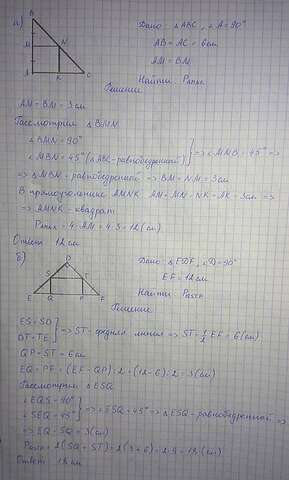 а)
B
M
N
A
K
C
Дано: △ABC, ∠A=90°
AB = AC = 6см
AM = BM
Найти: Pamnk
Решение
AM = BM = 3 см
Рассмотрим △BMN
∠BMN = 90°
∠MBN = 45° (△ABC - равнобедренный) } => ∠MNB = 45° =>
=> △MBN - равнобедренный => BM = NM = 3 см
В прямоугольнике AMNK AM = MN = NK = AK = 3см =>
=> AMNK - квадрат
Pamnk = 4 · AM = 4 · 3 = 12 (см)
Ответ: 12 см
б)
D
S
T
E
Q
P
F
Дано: △EDF, ∠D=90°
EF = 12 см
Найти: Pqstp
Решение
ES = SD
DT = TF } => ST - средняя линия => ST = 1/2 EF = 6 (см)
QP = ST = 6 см
EQ = PF = (EF - QP) : 2 = (12-6) : 2 = 3 (см)
Рассмотрим △ESQ
∠EQS = 90°
∠SEQ = 45° } => ∠ESQ = 45° => △ESQ - равнобедренный =>
=> EQ = SQ = 3 (см)
Pqstp = 2(SQ + ST) = 2(3+6) = 2 · 9 = 18 (см)
Ответ: 18 см